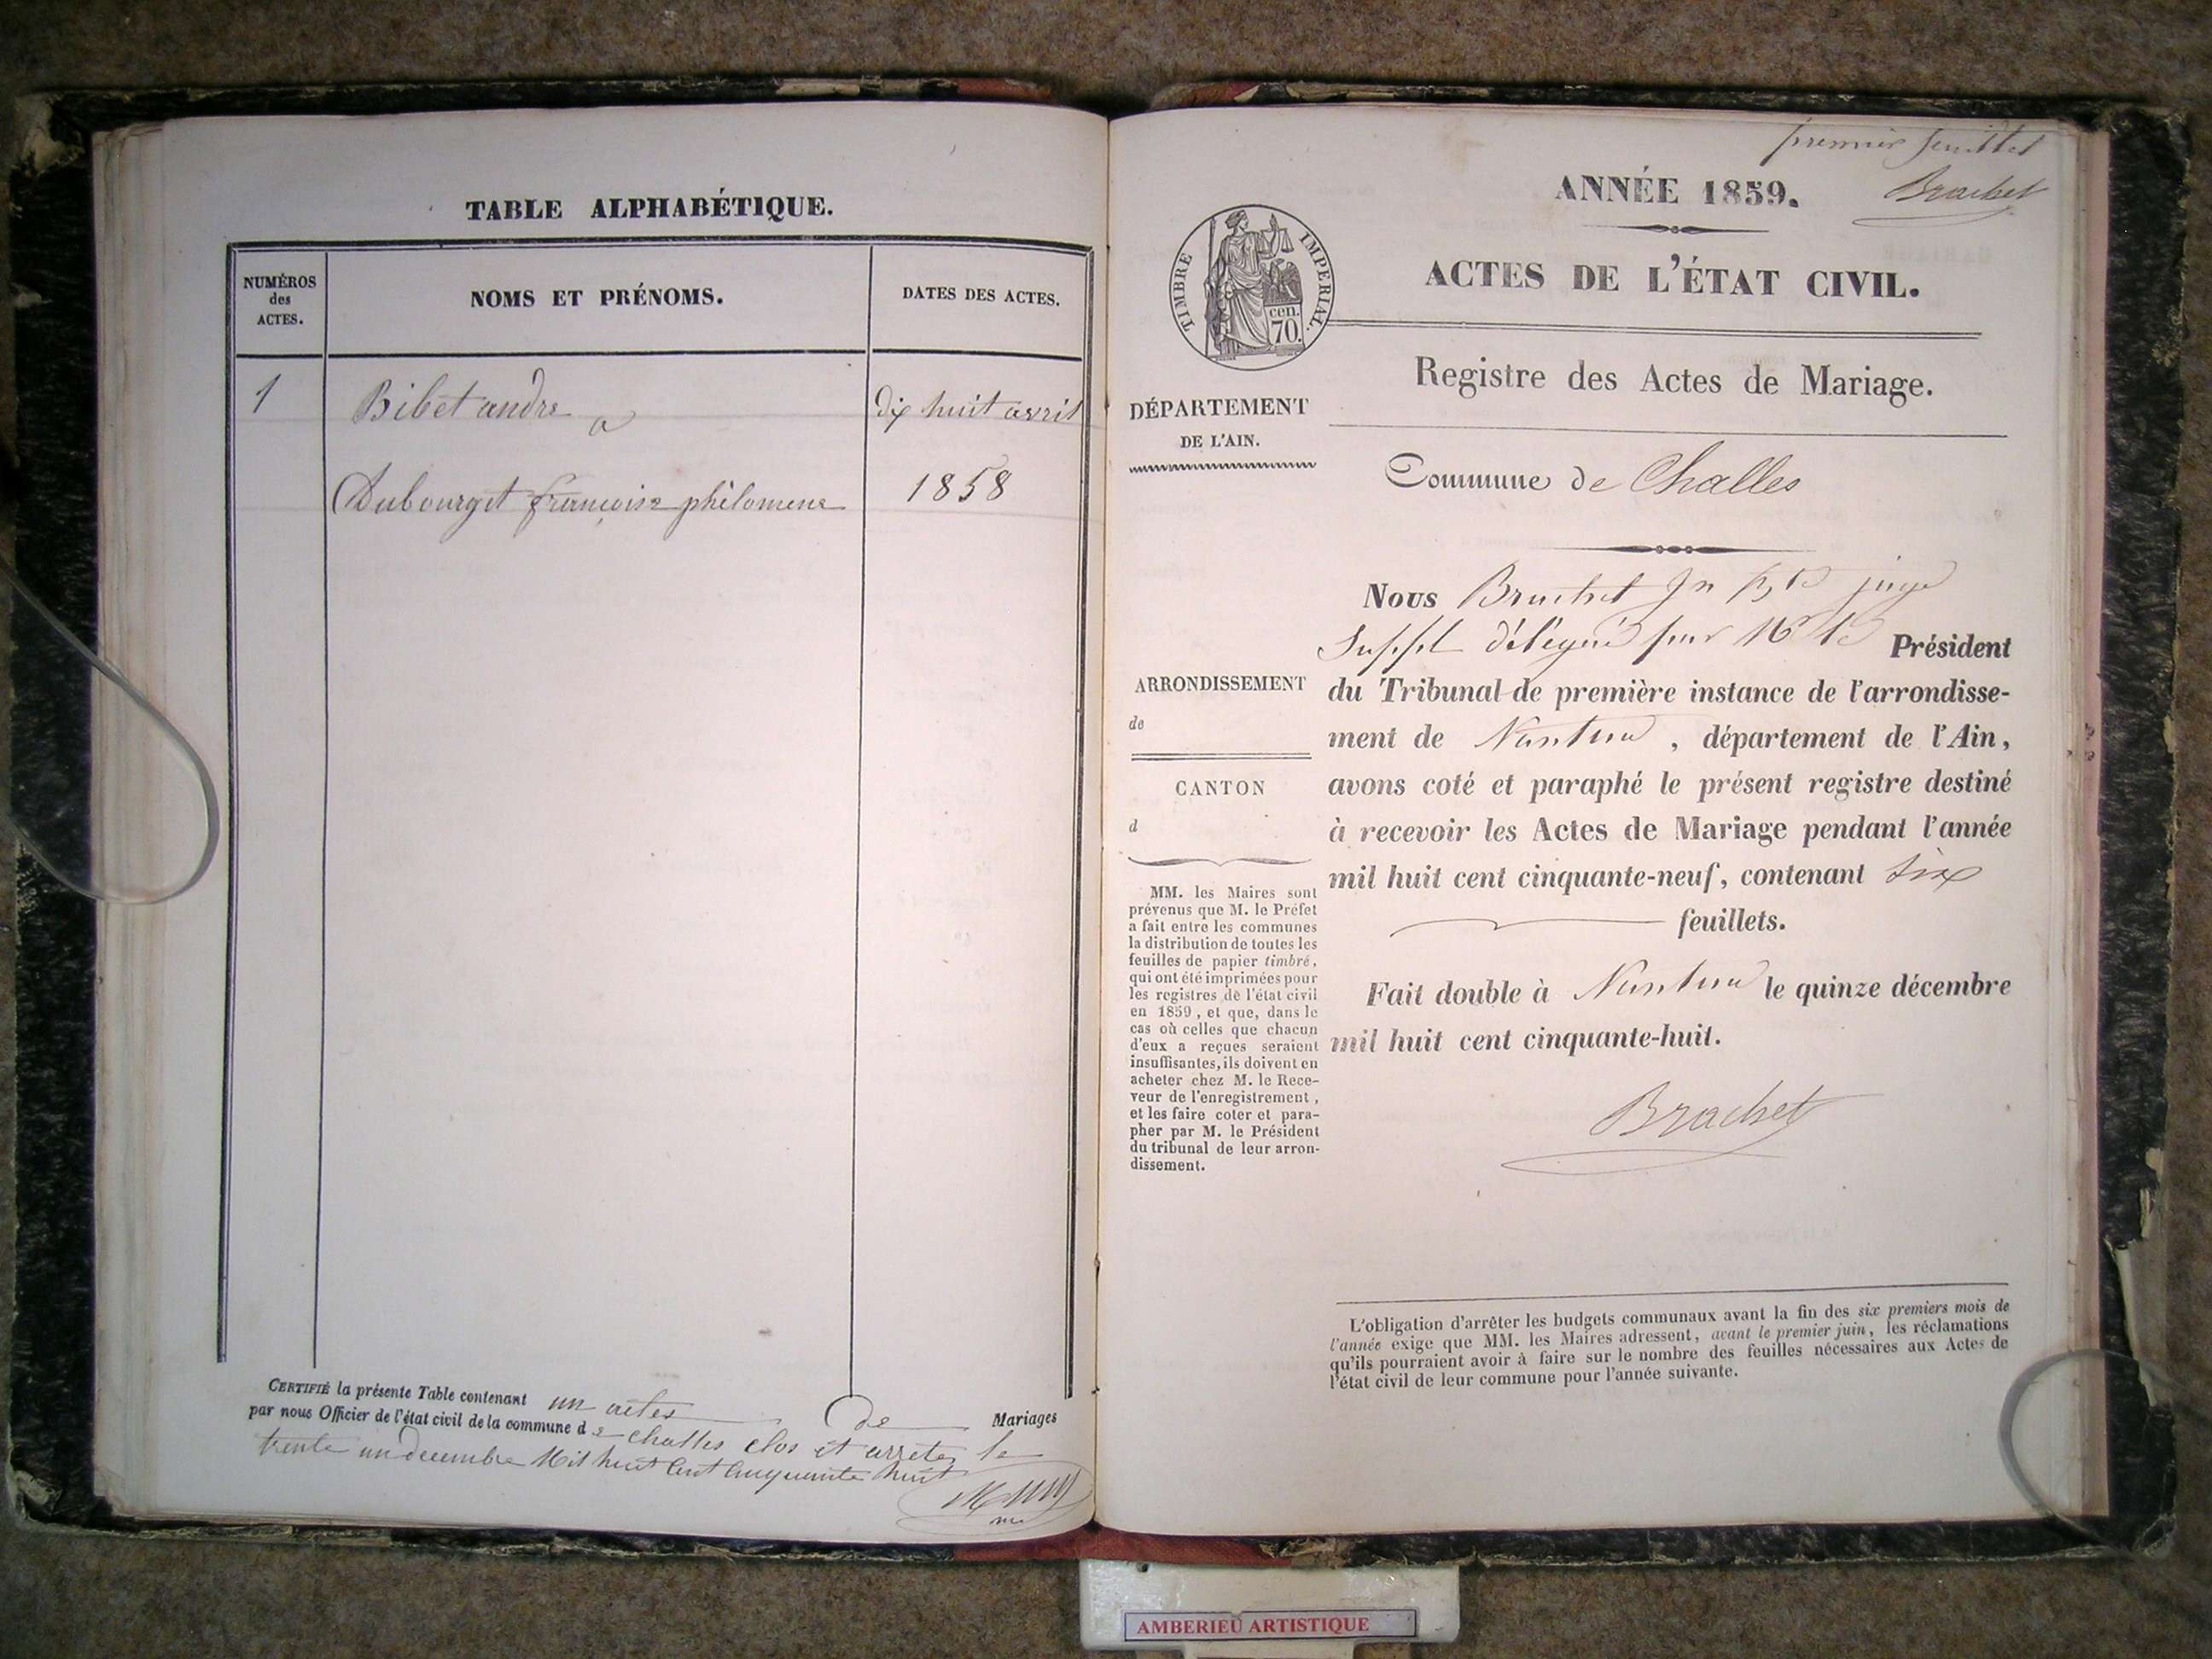 TABLE ALPHABÉTIQUE.
NUMÉROS
des
ACTES.
NOMS ET PRÉNOMS.
DATES DES ACTES.
1
Bibet andre
a
dix huit avril
Dubourget françoise philomene
1858
CERTIFIÉ la présente Table contenant un actes de Mariages
par nous Officier de l'état civil de la commune de challes clos et arretez le
trente un decembre Mil huit Cent Cinquante huit
premier feuillet
Brachet
ANNÉE 1859.
ACTES DE L'ÉTAT CIVIL.
TIMBRE IMPERIAL.
cen.
70.
Registre des Actes de Mariage.
DÉPARTEMENT
DE L'AIN.
Commune de Challes
Nous Brachet juge
Suppl délégué par Président
ARRONDISSEMENT
de
CANTON
d
du Tribunal de première instance de l'arrondisse-
ment de Nantua, département de l'Ain,
avons coté et paraphé le présent registre destiné
à recevoir les Actes de Mariage pendant l'année
mil huit cent cinquante-neuf, contenant six
feuillets.
Fait double à Nantua le quinze décembre
mil huit cent cinquante-huit.
Brachet
MM. les Maires sont
prévenus que M. le Préfet
a fait entre les communes
la distribution de toutes les
feuilles de papier timbré,
qui ont été imprimées pour
les registres de l'état civil
en 1859, et que, dans le
cas où celles que chacun
d'eux a reçues seraient
insuffisantes, ils doivent en
acheter chez M. le Rece-
veur de l'enregistrement,
et les faire coter et para-
pher par M. le Président
du tribunal de leur arron-
dissement.
L'obligation d'arrêter les budgets communaux avant la fin des six premiers mois de
l'année exige que MM. les Maires adressent, avant le premier juin, les réclamations
qu'ils pourraient avoir à faire sur le nombre des feuilles nécessaires aux Actes de
l'état civil de leur commune pour l'année suivante.
AMBERIEU ARTISTIQUE